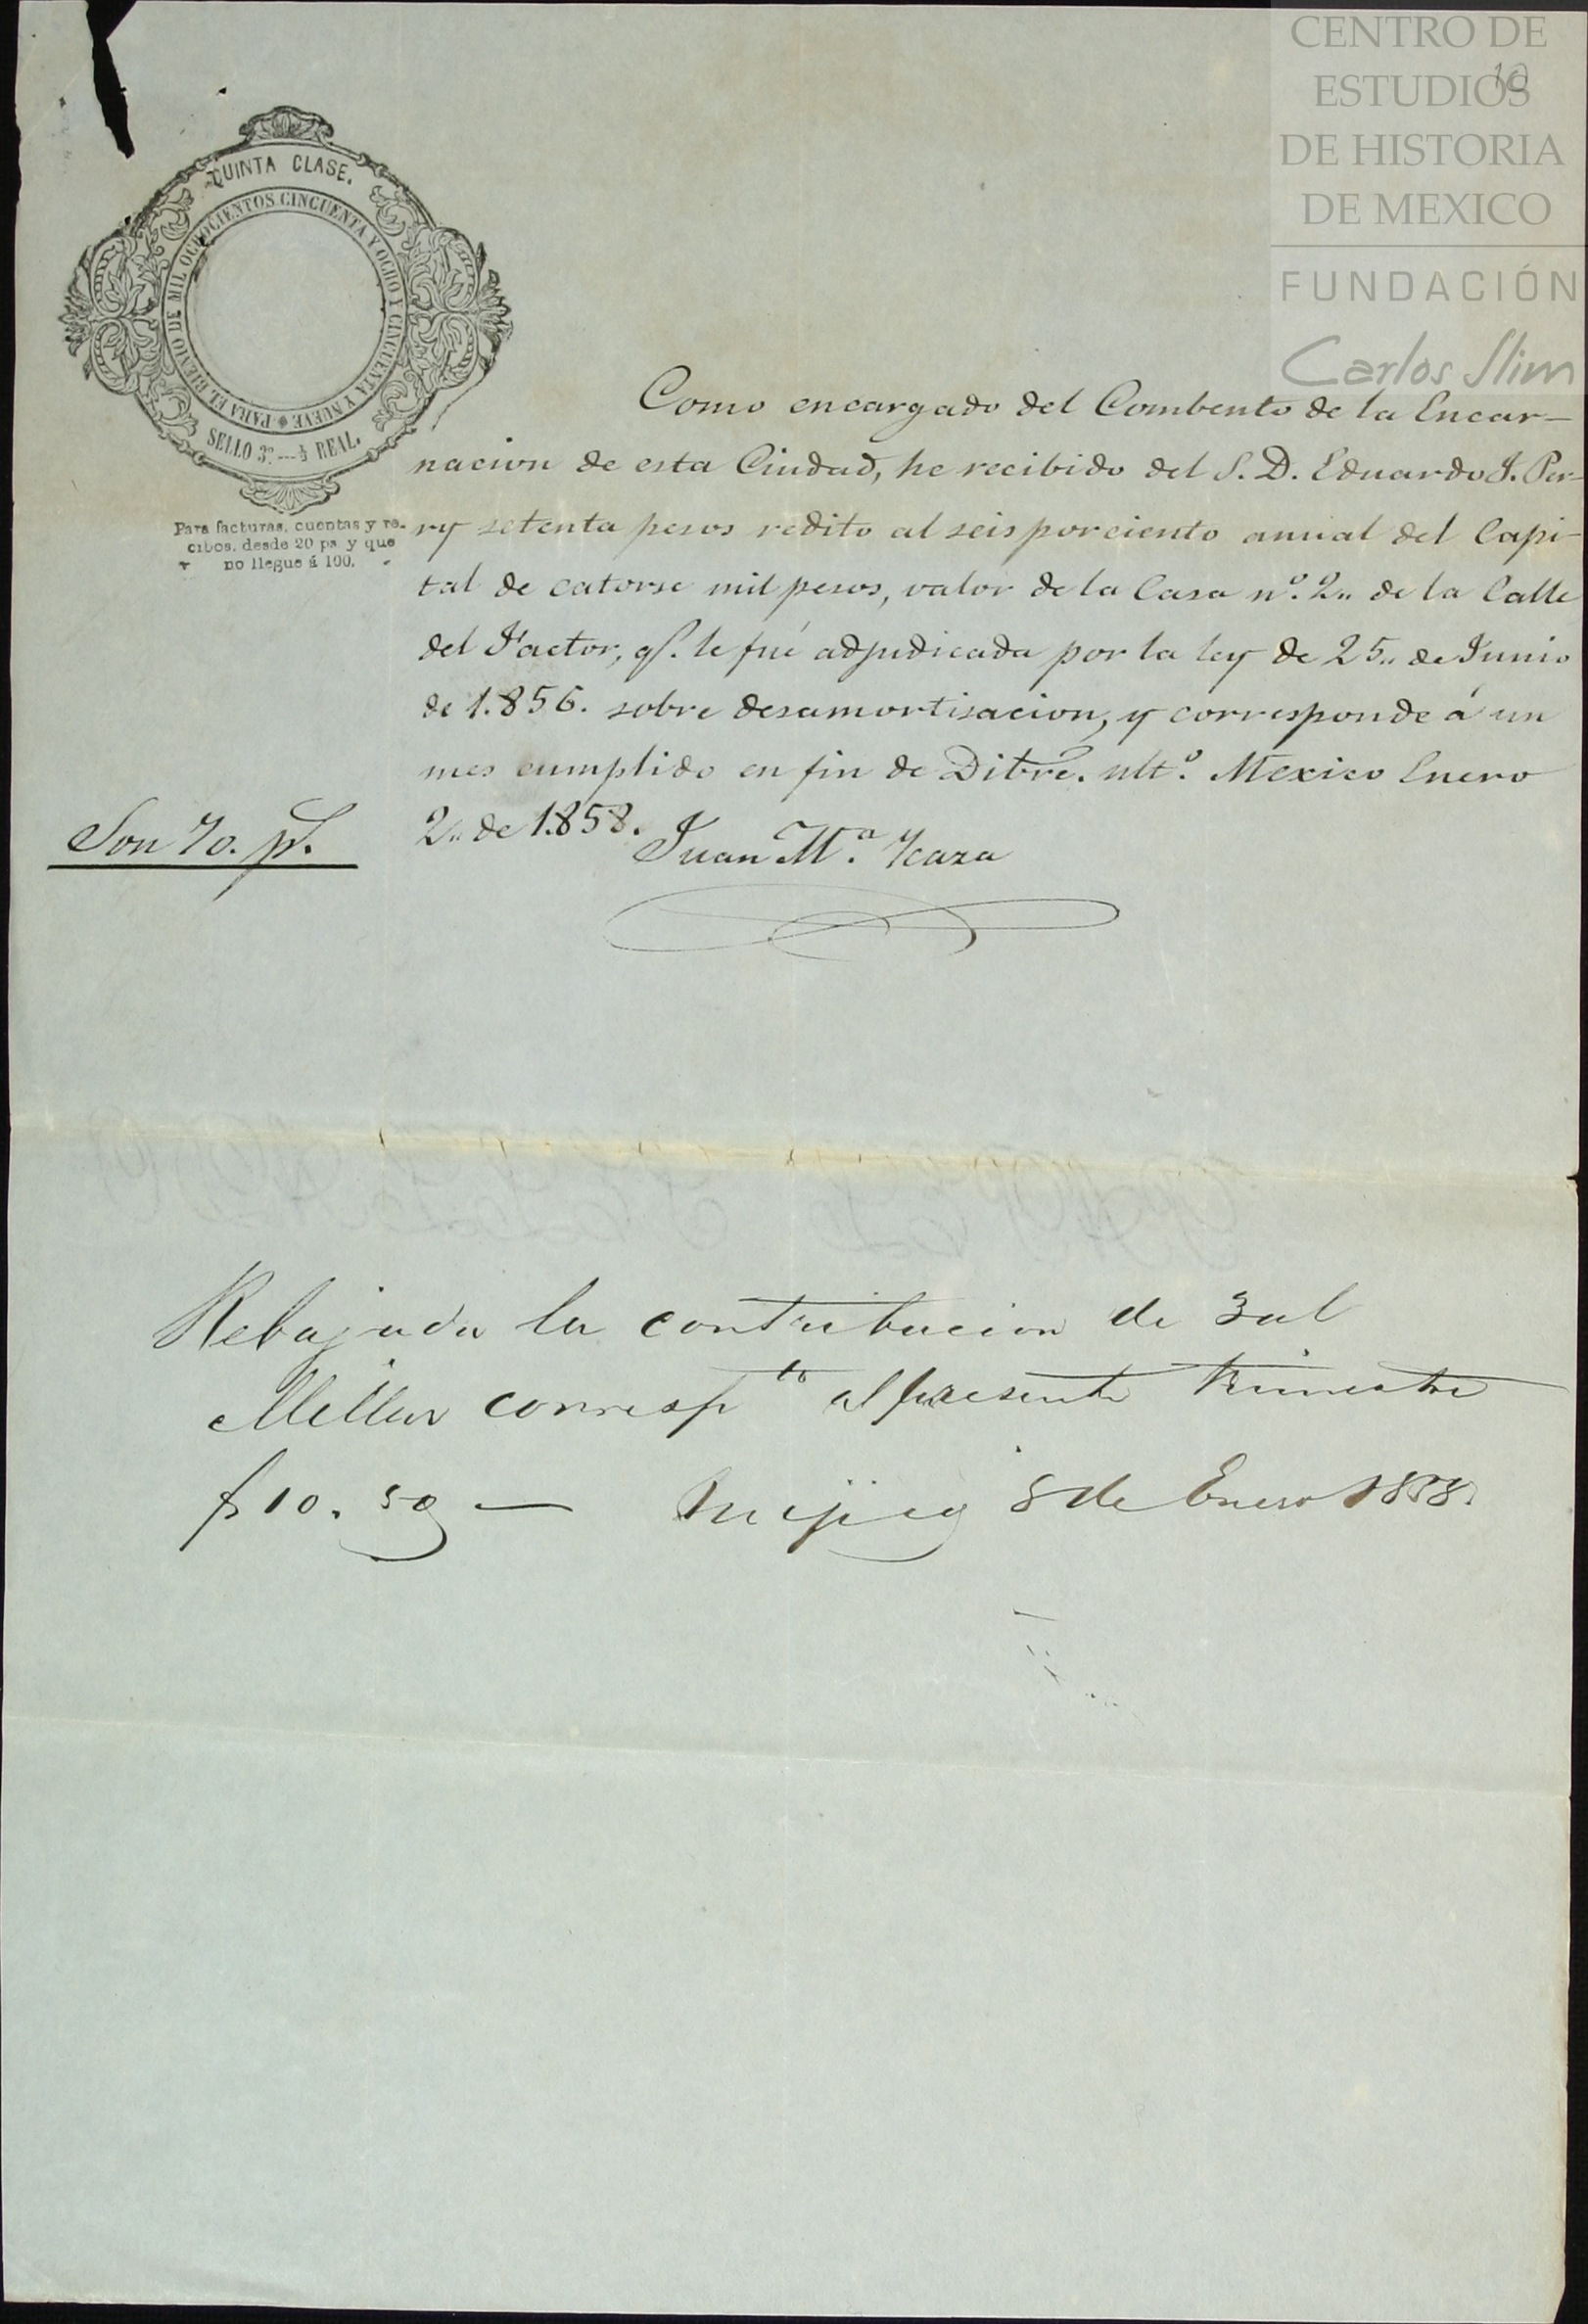 CENTRO DE
ESTUDIOS
DE HISTORIA
DE MEXICO
FUNDACIÓN
Carlos Slim
10
QUINTA CLASE.
PARA EL BIENIO DE MIL OCHOCIENTOS CINCUENTA Y OCHO Y CINCUENTA Y NUEVE
SELLO 3º---½ REAL.
Para facturas, cuentas y re-
cibos, desde 20 ps. y que
no llegue á 100.
Como encargado del Combento de la Encar-
nacion de esta Ciudad, he recibido del S. D. Eduardo J. Per-
ry setenta pesos redito al seis por ciento anual del Capi-
tal de catorse mil pesos, valor de la Casa nº. 2.. de la Calle
del Factor, q. le fué adjudicada por la ley de 25.. de Junio
de 1.856. sobre desamortisacion, y corresponde á un
mes cumplido en fin de Ditbre. ultº. Mexico Enero
2.. de 1.858.
Son 70. ps.
Juan Mª. Ycaza
Rebajada la contribucion de 3 al
Millar correspte al presente trimestre
$ 10. 50 — Mejico 8 de Enero 1858.